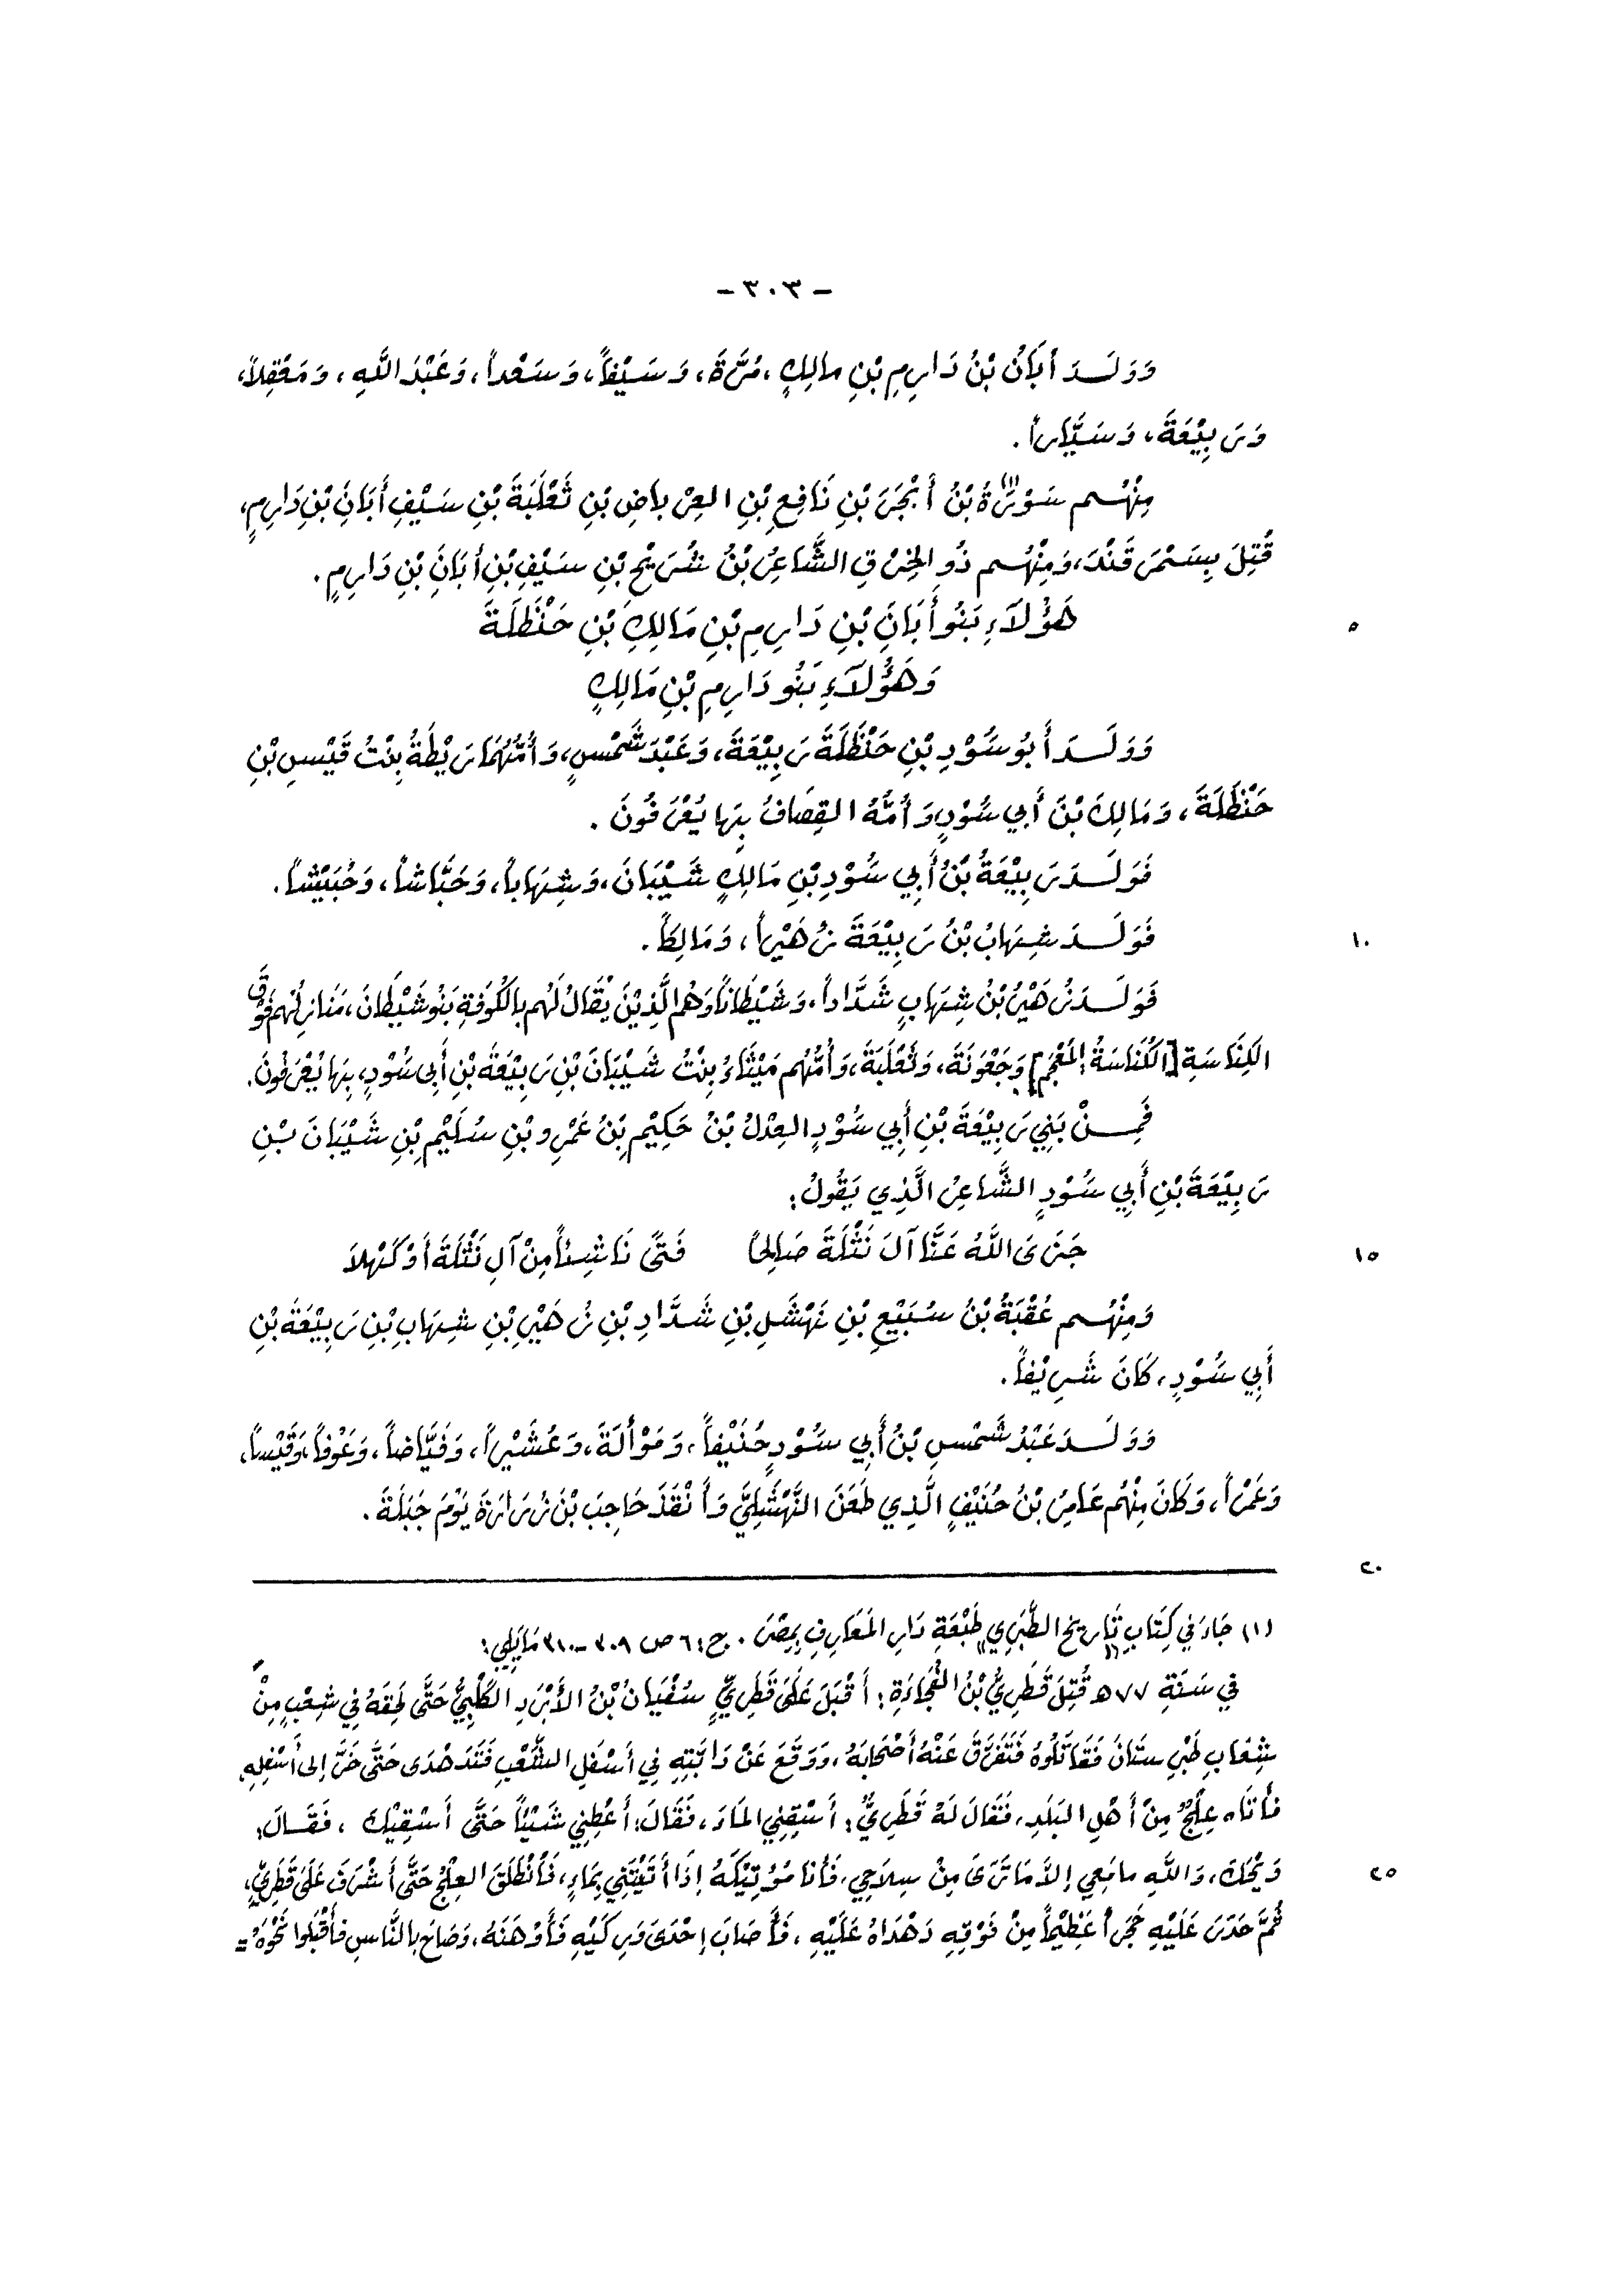 - ٣٠٣ -
وَوَلَدَ أَبَانُ بْنُ دَارِمِ بْنِ مالِكٍ، مُرَّةَ، وَسَيْفاً، وَسَعْداً، وَعَبْدَ اللَّهِ، وَمَعْقِلاً،
وَرَبِيْعَةَ، وَسَيَّاراً.
مِنْهُم سَوْرَةُ(١) بْنُ أَبْجَرَ بْنِ نَافِعِ بْنِ العِرْبَاضِ بْنِ ثَعْلَبَةَ بْنِ سَيْفِ أَبَانَ بْنِ دَارِمٍ،
قُتِلَ بِسَمَرْقَنْدَ، وَمِنْهُم ذُو الخِرَقِ الشَّاعِرُ بْنُ شُرَيْحِ بْنِ سَيْفِ بْنِ أَبَانَ بْنِ دَارِمٍ.
هَؤُلَاءِ بَنُو أَبَانَ بْنِ دَارِمِ بْنِ مَالِكِ بْنِ حَنْظَلَةَ
٥
وَهَؤُلَاءِ بَنُو دَارِمِ بْنِ مَالِكٍ
وَوَلَدَ أَبُو سُوْدِ بْنِ حَنْظَلَةَ رَبِيْعَةَ، وَعَبْدَ شَمْسٍ، وَأُمُّهُمَا رَيْطَةُ بِنْتُ قَيْسِ بْنِ
حَنْظَلَةَ، وَمَالِكَ بْنَ أَبِي سُوْدٍ وَأُمُّهُ القِصَافُ بِهَا يُعْرَفُونَ.
فَوَلَدَ رَبِيْعَةُ بْنُ أَبِي سُوْدِ بْنِ مَالِكٍ شَيْبَانَ، وَشِهَاباً، وَحَبَّاشاً، وَحُبَيْشاً.
فَوَلَدَ شِهَابُ بْنُ رَبِيْعَةَ زُهَيْراً، وَمَالِكاً.
١٠
فَوَلَدَ زُهَيْرُ بْنُ شِهَابٍ شَدَّاداً، وَشَيْطَاناً وَهُم الَّذِيْنَ يُقَالُ لَهُم بِالكُوفَةِ بَنُو شَيْطَانَ، مَنَازِلُهُم فَوْقَ
الكِنَاسَةِ [الكُنَاسَةُ: المُعْجَم] وَجَعْوَنَةَ، وَثَعْلَبَةَ، وَأُمُّهُم مَيْثَاءُ بِنْتُ شَيْبَانَ بْنِ رَبِيْعَةَ بْنِ أَبِي سُوْدٍ، بِهَا يُعْرَفُونَ.
فَمِنْ بَنِي رَبِيْعَةَ بْنِ أَبِي سُوْدٍ العِدْلُ بْنُ حَكِيْمِ بْنُ عَمْرِو بْنِ سُلَيْمِ بْنِ شَيْبَانَ بْنِ
رَبِيْعَةَ بْنِ أَبِي سُوْدٍ الشَّاعِرُ الَّذِي يَقُولُ:
جَزَى اللَّهُ عَنَّا آلَ نَثْلَةَ صَالِحاً فَتًى نَاشِئاً مِنْ آلِ نَثْلَةَ أَوْ كَهْلَا
١٥
وَمِنْهُم عُقْبَةُ بْنُ سُبَيْعِ بْنِ نَهْشَلِ بْنِ شَدَّادِ بْنِ زُهَيْرِ بْنِ شِهَابِ بْنِ رَبِيْعَةَ بْنِ
أَبِي سُوْدٍ، كَانَ شَرِيْفاً.
وَوَلَدَ عَبْدُ شَمْسِ بْنُ أَبِي سُوْدٍ حُنَيْفاً، وَمَوْأَلَةَ، وَعُشَيْراً، وَفَيَّاضاً، وَعَوْفاً، وَقَيْساً،
وَعَمْراً، وَكَانَ مِنْهُم عَامِرُ بْنُ حُنَيْفٍ الَّذِي طَعَنَ النَّهْشَلِيَّ وَأَنْقَذَ حَاجِبَ بْنَ زُرَارَةَ يَوْمَ جَبَلَةَ.
٢٠
(١) جَاءَ فِي كِتَابِ تَارِيخِ الطَّبَرِيِّ "طَبْعَةِ دَارِ المَعَارِفِ بِمِصْرَ. ج: ٦ ص ٣٠٩ - ٣١٠ مَا يَلِي:
فِي سَنَةِ ٧٧ هـ قُتِلَ قَطَرِيُّ بْنُ الفُجَاءَةِ: أَقْبَلَ عَلَى قَطَرِيٍّ سُفْيَانُ بْنُ الأَبْرَدِ الكَلْبِيُّ حَتَّى لَحِقَهُ فِي شِعْبٍ مِنْ
شِعَابِ طَبَرِسْتَانَ فَقَاتَلُوهُ فَتَفَرَّقَ عَنْهُ أَصْحَابَهُ، وَوَقَعَ عَنْ دَابَّتِهِ فِي أَسْفَلِ الشِّعْبِ فَتَدَهْدَى حَتَّى خَرَّ إِلى أَسْفَلِهِ،
فَأَتَاه عِلْجٌ مِنْ أَهْلِ البَلَدِ، فَقَالَ لَهُ قَطَرِيُّ: أَسْقِنِي المَاءَ، فَقَالَ: أَعْطِنِي شَيْئاً حَتَّى أَسْقِيْكَ، فَقَالَ:
وَيْحَكَ، وَاللَّهِ مامَعِي إِلاَّ مَا تَرَى مِنْ سِلاَحِي، فَأَنا مُؤْتِيْكَهُ إِذَا أَتَيْتَنِي بِمَاءٍ، فَانْطَلَقَ العِلْجُ حَتَّى أَشْرَفَ عَلَى قَطَرِيٍّ،
٢٥
ثُمَّ حَدَرَ عَلَيْهِ حَجَراً عَظِيْماً مِنْ فَوْقِهِ دَهْدَاهُ عَلَيْهِ، فَأَصَابَ إِحْدَى وَرِكَيْهِ فَأَوْهَنَهُ، وَصَاحَ بِالنَّاسِ فأَقْبَلُوا نَحْوَهُ =